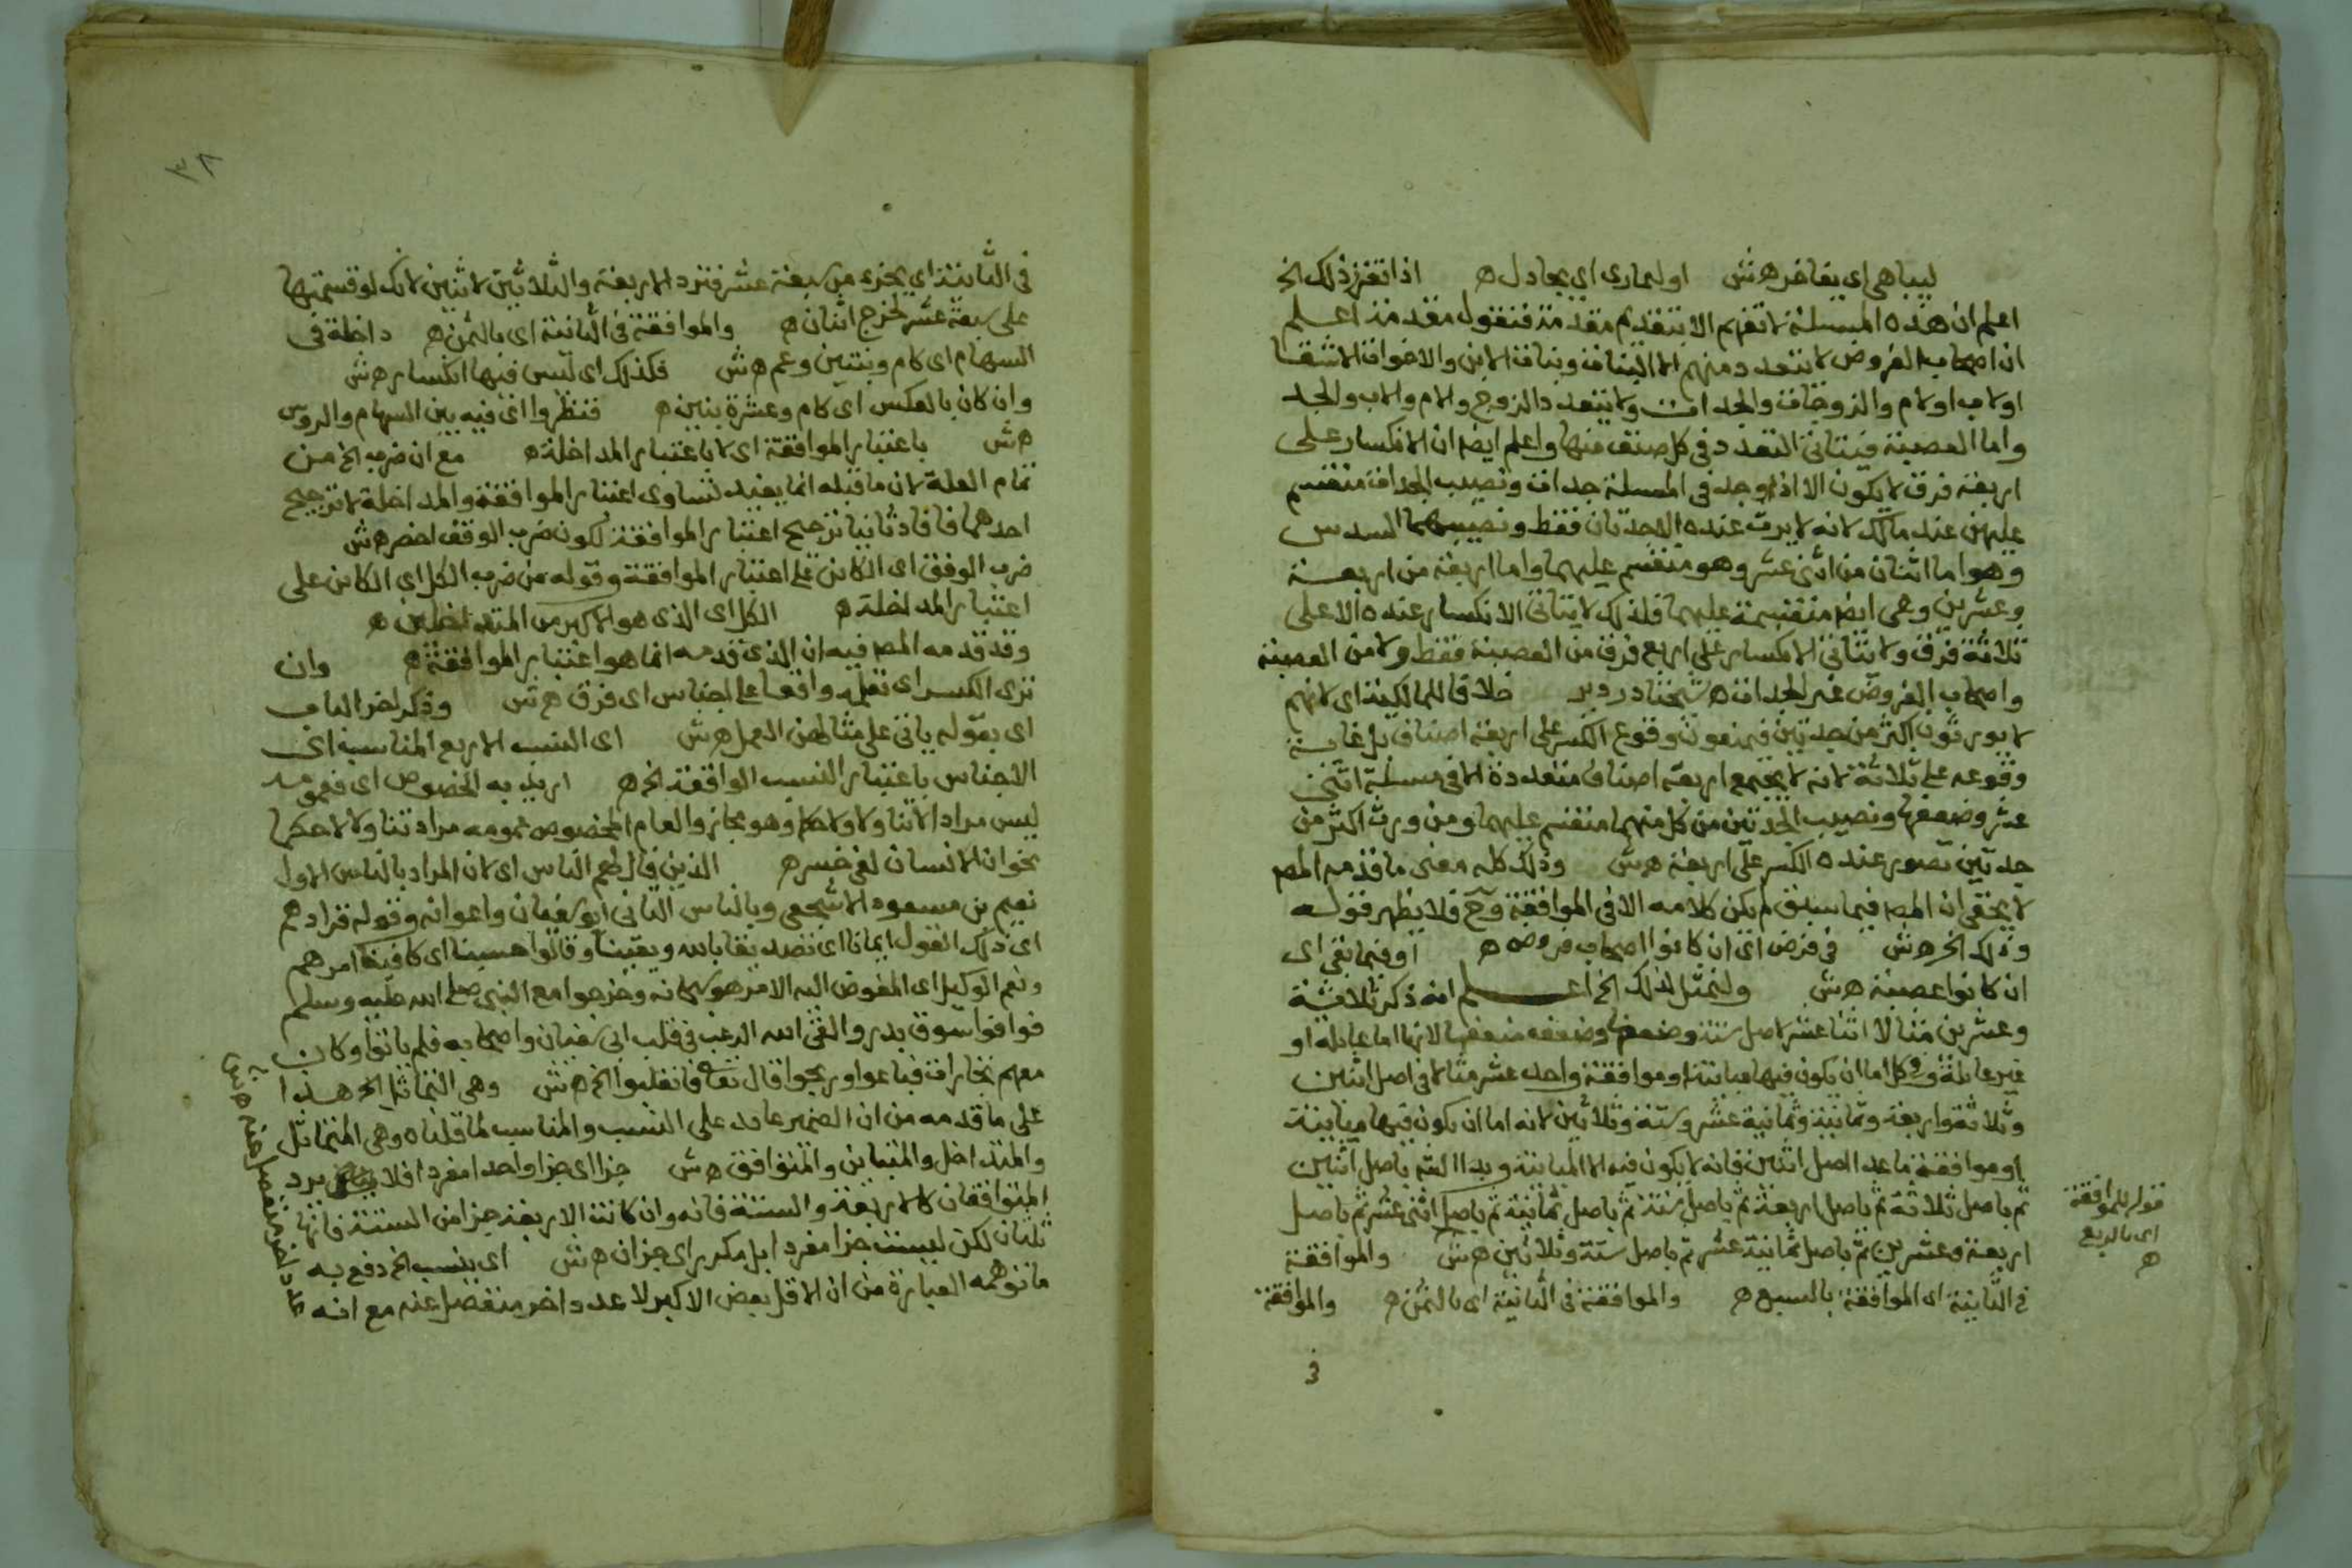 ليباهى اى يفاخر ه ش او ليمارى اى يجادل ه اذا تقرر ذلك الخ
اعلم ان هذه المسئلة لا تفهم الا بتقديم مقدمة فنقول مقدمة اعلم
ان اصحاب الفروض لا يتعدد منهم الا البنات وبنات الابن والاخوات الاشقا
او لاب او لام والزوجات والجدات ولا يتعدد الزوج والام والاب والجد
واما العصبة فيتاتى التعدد فى كل صنف منها واعلم ايضا ان الانكسار على
اربعة فرق لا يكون الا اذا وجد فى المسئلة جدات ونصيب الجدات منقسم
عليهن عند مالك لانه لا يرث عنده الا جدتان فقط ونصيبهما السدس
وهو اما اثنان من اثنى عشر وهو منقسم عليهما واما اربعة من اربعة
وعشرين وهى ايضا منقسمة عليهما فلذلك لا يتاتى الانكسار عنده الا على
ثلاثة فرق ولا يتاتى الانكسار على اربع فرق من العصبة فقط ولا من العصبة
واصحاب الفروض غير الجدات ه شيخنا دردير خلافا للمالكية اى لانهم
لا يورثون اكثر من جدتين فيمنعون وقوع الكسر على اربعة اصناف بل غاية
وقوعه على ثلاثة لانه لا يجتمع اربعة اصناف متعددة الا فى مسئلة اثنى
عشر وضعفها ونصيب الجدتين من كل منهما منقسم عليهما ومن ورث اكثر من
جدتين تصور عنده الكسر على اربعة ه ش وذلك كله معنى ما قدمه المصـ
لا يخفى ان المصـ فيما سبق لم يكن كلامه الا فى الموافقة وح فلا يظهر قوله
وذلك الخ ه ش فى فرض اى ان كانوا اصحاب فروض ه او فيما بقى اى
ان كانوا عصبة ه ش ولنمثل لذلك الخ اعلم انه ذكر ثلاثة
وعشرين مثالا اثنا عشر لاصل ستة وضعفها وضعف ضعفها لانها اما عايلة او
غير عايلة وكل اما ان يكون فيها مباينة او موافقة واحد عشر مثالا فى اصل اثنين
وثلاثة واربعة وثمانية وثمانية عشر وستة وثلاثين لانه اما ان يكون فيها مباينة
او موافقة ما عدا اصل اثنين فانه لا يكون فيه الا المباينة وبدا المصـ باصل اثنين
ثم باصل ثلاثة ثم باصل اربعة ثم باصل ستة ثم باصل ثمانية ثم باصل اثنى عشر ثم باصل
اربعة وعشرين ثم باصل ثمانية عشر ثم باصل ستة وثلاثين ه ش والموافقة
فى الثانية اى الموافقة بالسبع ه والموافقة فى الثانية اى بالثمن ه والموافقة
قوله للموافقة
اى بالربع
ه
فى
٣٨
فى الثانية اى بجزء من سبعة عشر فترد الاربعة والثلاثين لاثنين لانك لو قسمتها
على سبعة عشر لخرج اثنان ه والموافقة فى الثانية اى بالثمن ه داخلة فى
السهام اى كام وبنتين وعم ه ش فكذلك اى ليس فيها انكسار ه ش
وان كان بالعكس اى كام وعشرة بنين ه فتنظروا اى فيه بين السهام والروس
ه ش باعتبار الموافقة اى لا باعتبار المداخلة ه مع ان ضرب الخ من
تمام العلة لان ما قبله انما يفيد تساوى اعتبار الموافقة والمداخلة لا ترجيح
احدهما فافاد ثانيا ترجيح اعتبار الموافقة لكون ضرب الوفق اخصر ه ش
ضرب الوفق اى الكاين على اعتبار الموافقة وقوله من ضرب الكل اى الكاين على
اعتبار المداخلة ه الكل اى الذى هو الاكبر من المتداخلين ه
وقد قدمه المصـ فيه ان الذى قدمه انما هو اعتبار الموافقة ه وان
ترى الكسر اى تعلمه واقعا على اجناس اى فرق ه ش وذكر اخر الباب
اى بقوله ياتى على مثالهن العمل ه ش اى النسب الاربع المناسب اى
الاجناس باعتبار النسب الواقعة الخ ه اريد به الخصوص اى فعمومه
ليس مرادا لا تناولا ولا حكما وهو مجاز والعام المخصوص عمومه مراد تناولا لا حكما
نحو ان الانسان لفى خسر ه الذين قال لهم الناس اى لان المراد بالناس الاول
نعيم بن مسعود الاشجعى وبالناس الثانى ابو سفيان واعوانه وقوله فزادهم
اى ذلك القول ايمانا اى تصديقا بالله ويقينا وقالوا حسبنا اى كافينا امرهم
ونعم الوكيل اى المفوض اليه الامر هو سبحانه وخرجوا مع النبى صلى الله عليه وسلم
فوافوا سوق بدر والقى الله الرعب فى قلب ابى سفيان واصحابه فلم ياتوا وكان
معهم تجارات فباعوا وربحوا قال تعالى فانقلبوا الخ ه ش وهى التماثل الخ هذا
على ما قدمه من ان الضمير عايد على النسب والمناسب لما قلناه وهى المتماثل
والمتداخل والمتباين والمتوافق ه ش جزا اى جزا واحدا مفردا فلا يرد
المتوافقان كالاربعة والستة فانه وان كانت الاربعة جزا من الستة فانها
ثلثان لكن ليست جزا مفردا بل مكررا اى جزان ه ش اى بنسب الخ دفع به
ما توهمه العبارة من ان الاقل بعض الاكبر لا عدد اخر منفصل عنه مع انه
عدد اخر منفصل عنه ه ش